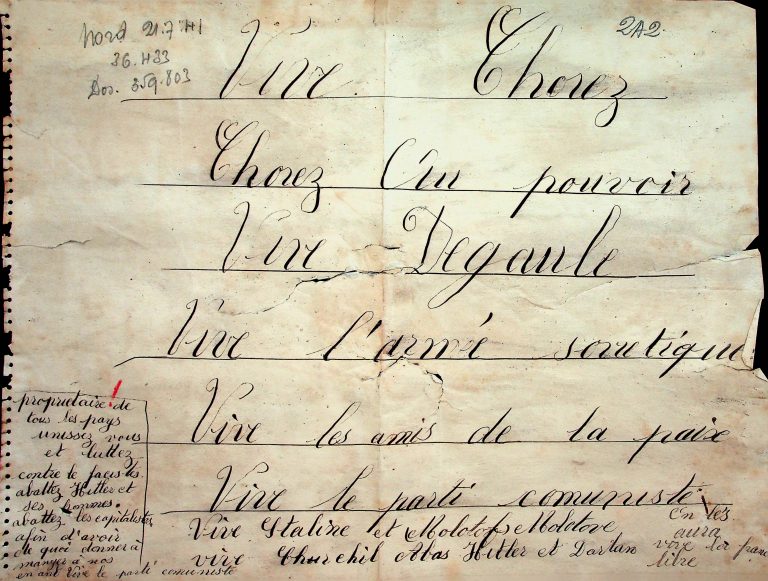 Nord 21.7.41
36.433
Dos. 359.803
2A2.
Vive Thorez
Thorez Au pouvoir
Vive Degaule
Vive l'armé sovietique
Vive les amis de la paix
Vive le parti comuniste
Vive Staline et Molotof Molotove
vive Churchil Abas Hitler et Darlan
On les
aura
vive la franc
libre
proprietaire de
tous les pays
unissez vous
et luttez
contre le
abattez Hitler et
ses hommes.
abattez les capitalistes
afin d'avoir
de quoi donner à
manger a nos
enfant Vive le parti comuniste